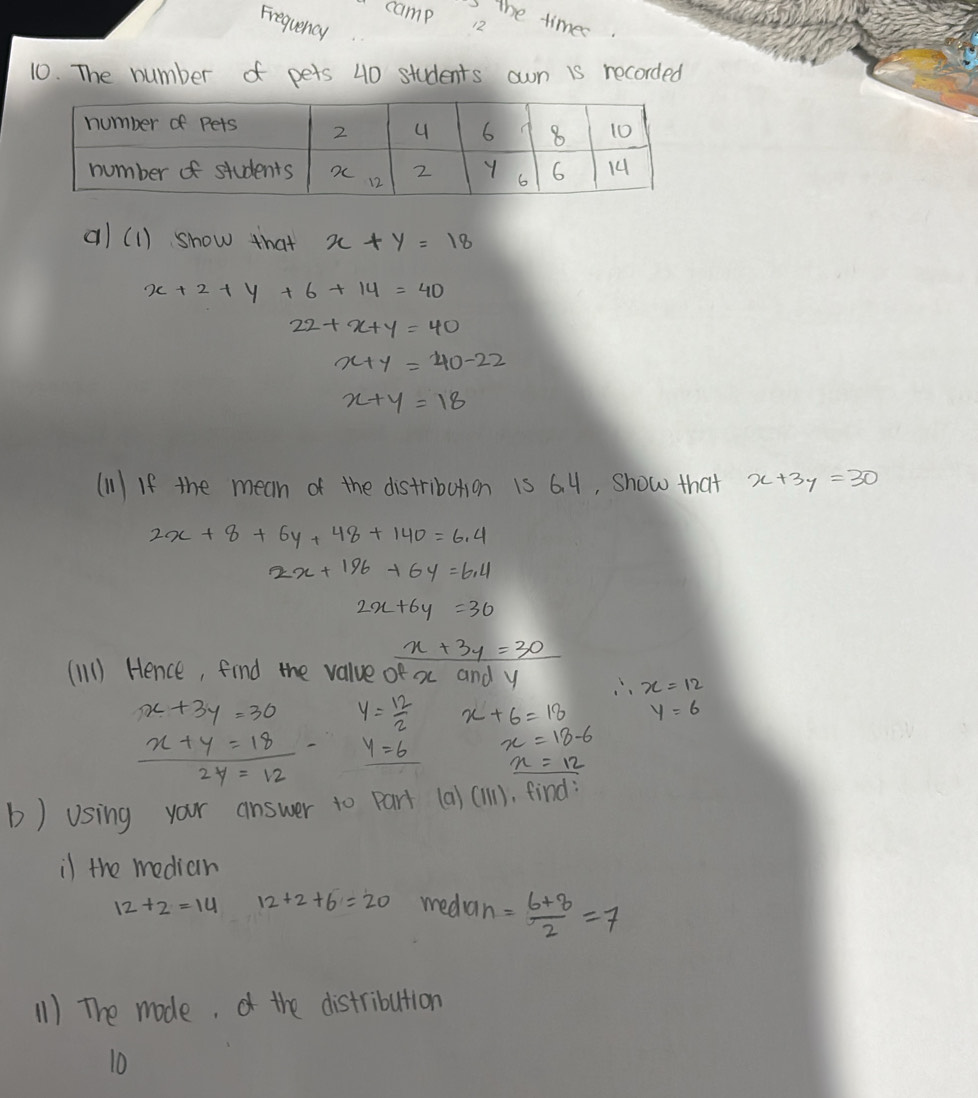 Frequency
camp
12
the times.
10. The number of pets 40 students own is recorded
number of Pets 2 4 6 8 10
number of students x 12 2 y 6 6 14
a) (i) Show that x + y = 18
x + 2 + y + 6 + 14 = 40
22 + x+y = 40
x+y = 40-22
x+y = 18
(ii) If the mean of the distribution is 6.4, show that x+3y = 30
2x + 8 + 6y + 48 + 140 = 6.4
2x + 196 + 6y = 6.4
2x+6y = 30
x + 3y = 30
(iii) Hence, find the value of x and y
x+3y = 30 y = 12/2 x+6 = 18 ∴ x = 12
x + y = 18 - y = 6 x = 18-6 y = 6
2y = 12 x = 12
b) Using your answer to Part (a) (iii), find:
i) the median
12+2 = 14 12+2+6 = 20 median = 6+8/2 = 7
ii) The mode, of the distribution
10